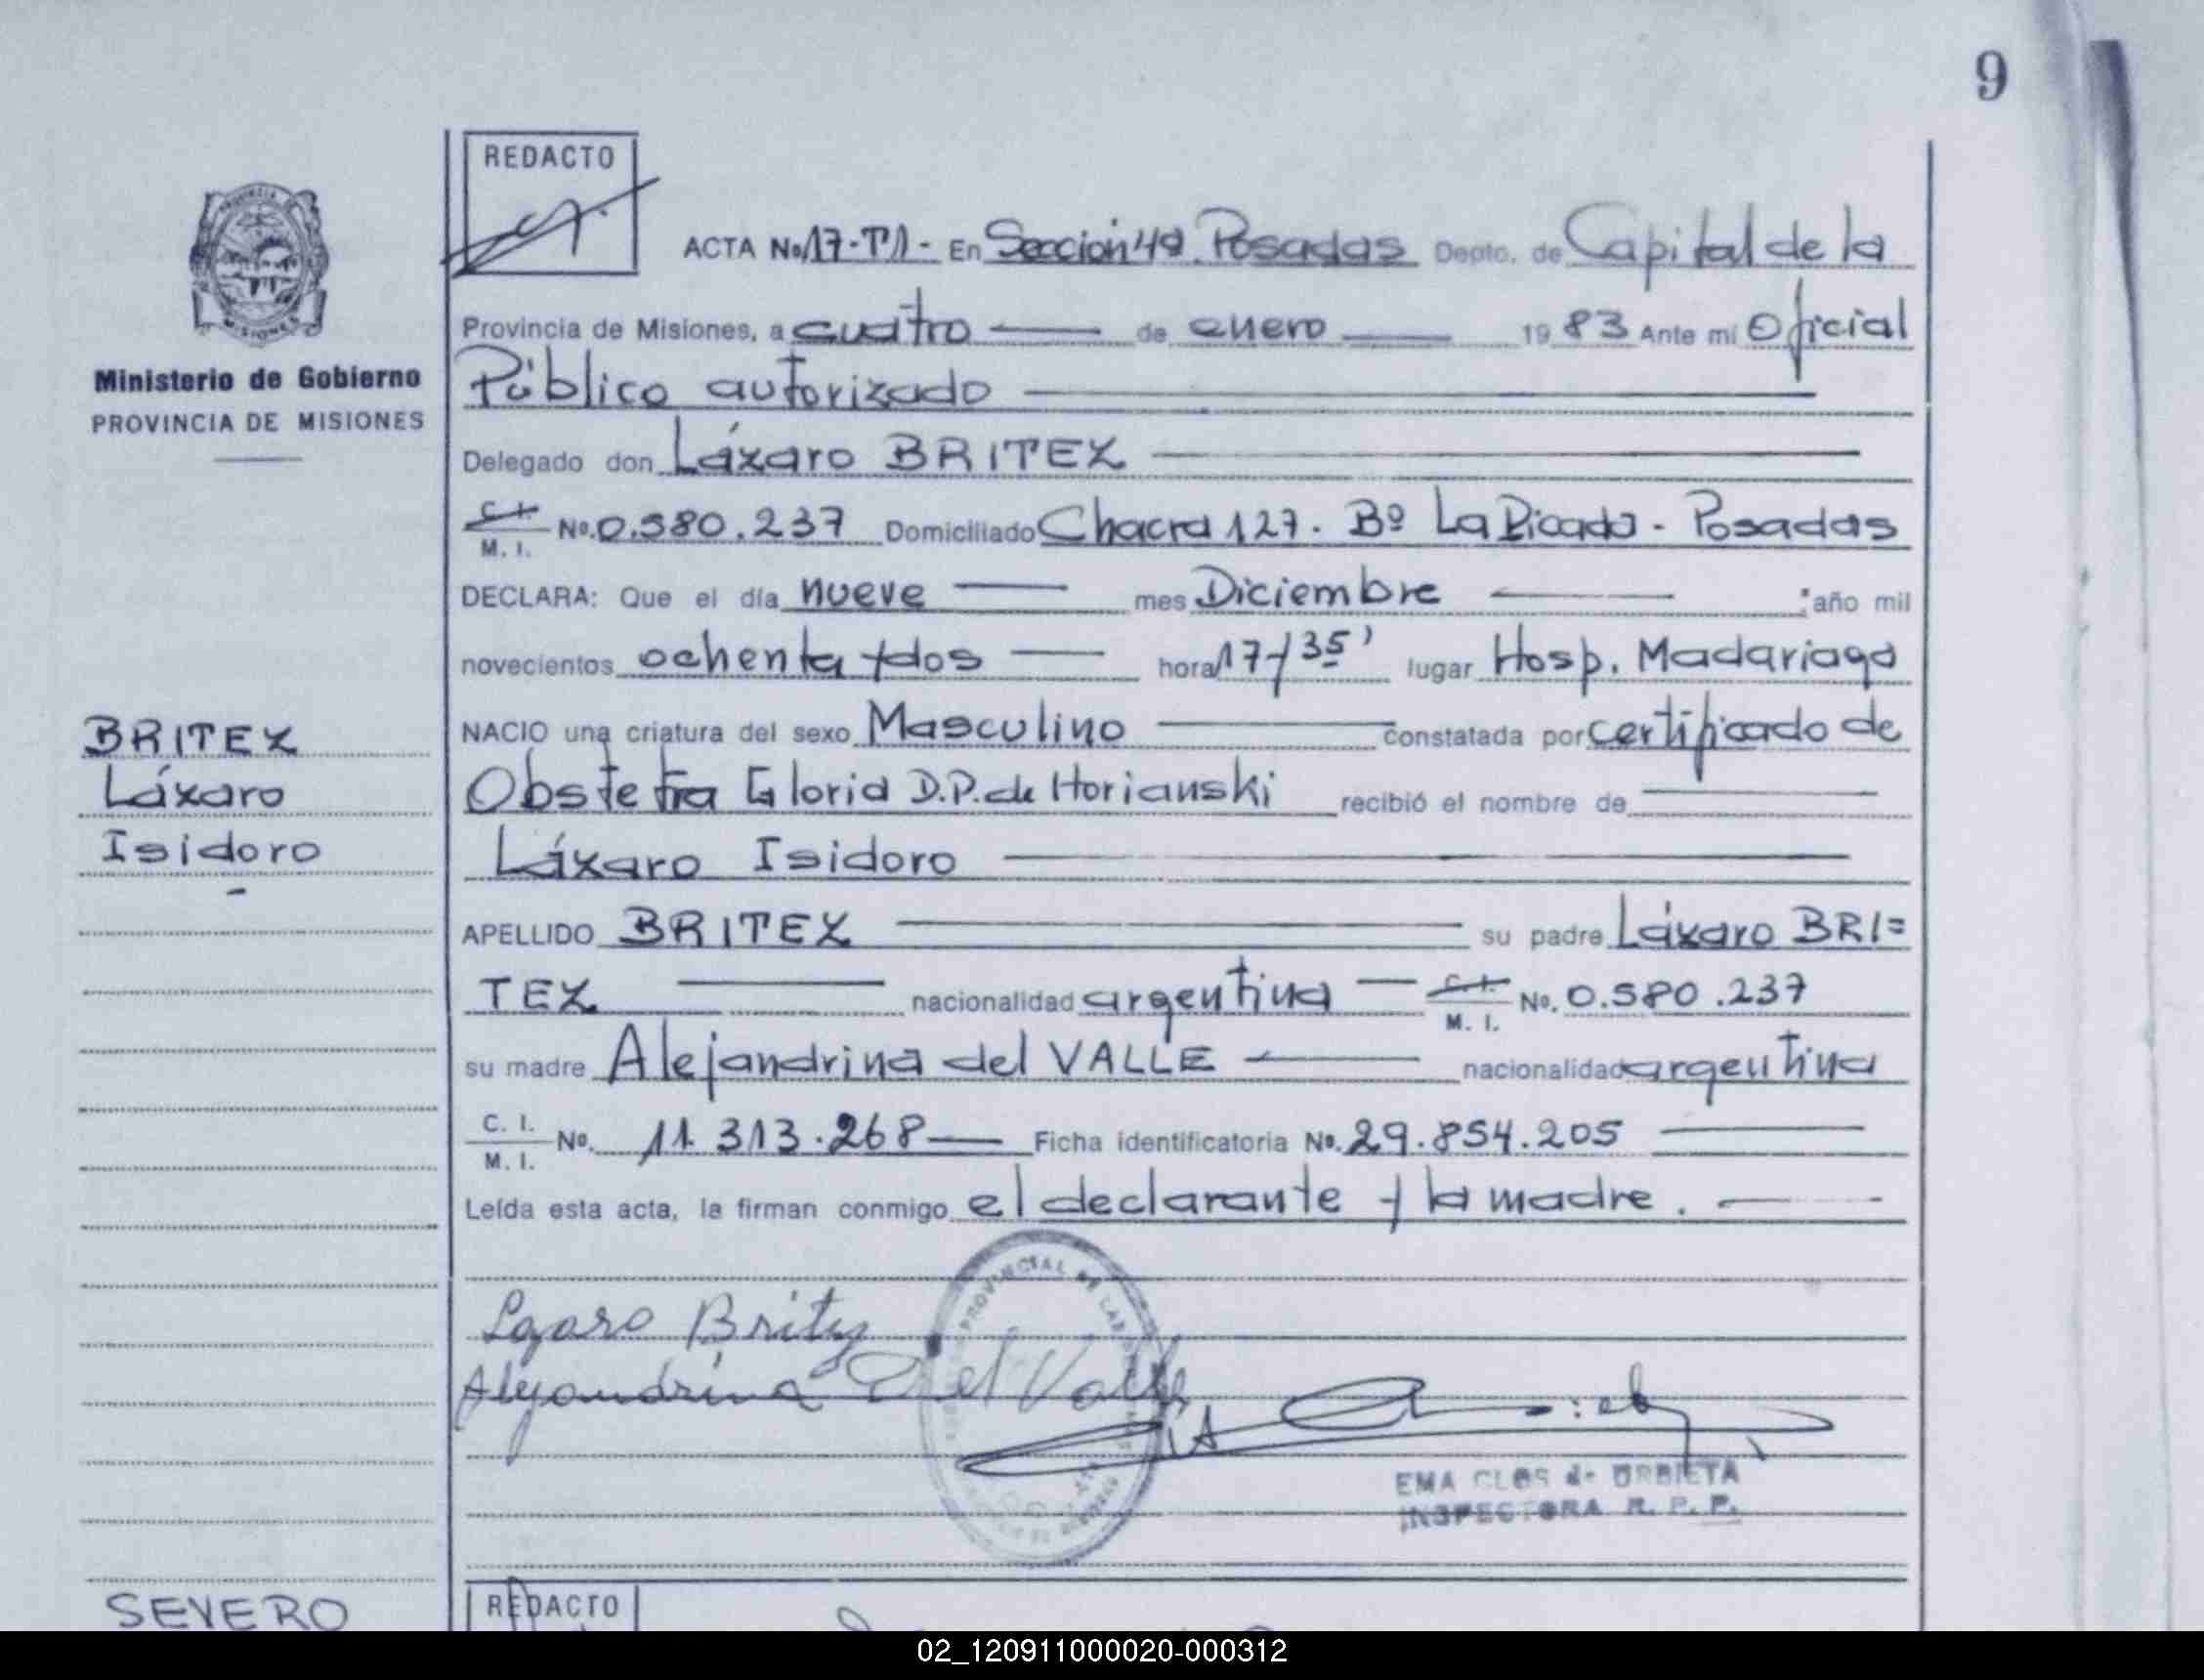 9
REDACTO
ACTA No. 17-T1- En Sección 4ª Posadas Depto. de Capital de la
Provincia de Misiones, a cuatro de enero 19 83 Ante mi Oficial
Público autorizado
Delegado don Lázaro BRITEZ
C. I. M. I. No. 0.580.237 Domiciliado Chacra 127. Bº La Picada - Posadas
DECLARA: Que el día nueve mes Diciembre año mil
novecientos ochenta y dos hora 17 y 35' lugar Hosp. Madariaga
NACIO una criatura del sexo Masculino constatada por certificado de
Obstetra Gloria D.P. de Horianski recibió el nombre de
Lázaro Isidoro
APELLIDO BRITEZ su padre Lázaro BRI=
TEZ nacionalidad argentina C. I. M. I. No. 0.580.237
su madre Alejandrina del VALLE nacionalidad argentina
C. I. M. I. No. 11.313.268 Ficha identificatoria No. 29.854.205
Leída esta acta, la firman conmigo el declarante y la madre.
Lazaro Britez
Alejandrina Del Valle
EMA CLOS de URBIETA
INSPECTORA R. P. P.
MISIONES
Ministerio de Gobierno
PROVINCIA DE MISIONES
BRITEZ
Lázaro
Isidoro
SEVERO
REDACTO
02_120911000020-000312